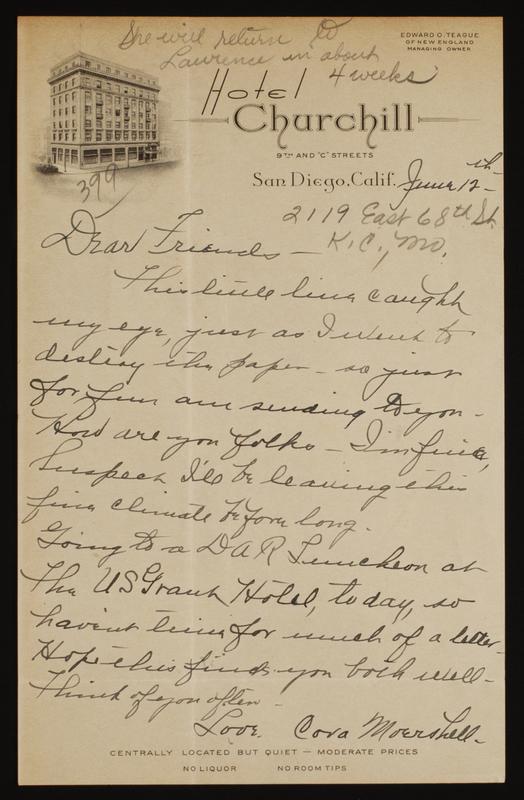 She will return to
Lawrence in about
4 weeks
EDWARD O. TEAGUE
OF NEW ENGLAND
MANAGING OWNER
Hotel
Churchill
9TH AND "C" STREETS
San Diego, Calif. June 12th
399
2119 East 68th St.
K.C., Mo.
Dear Friends —
This little line caught
my eye, just as I went to
destroy the paper — so just
for fun am sending to you —
How are you folks — I'm fine,
Suspect I'll be leaving this
fine climate before long.
Going to a DAR Luncheon at
the US Grant Hotel, today, so
haven't time for much of a letter —
Hope this finds you both well —
Think of you often —
Love. Cora Moershell.
CENTRALLY LOCATED BUT QUIET — MODERATE PRICES
NO LIQUOR NO ROOM TIPS